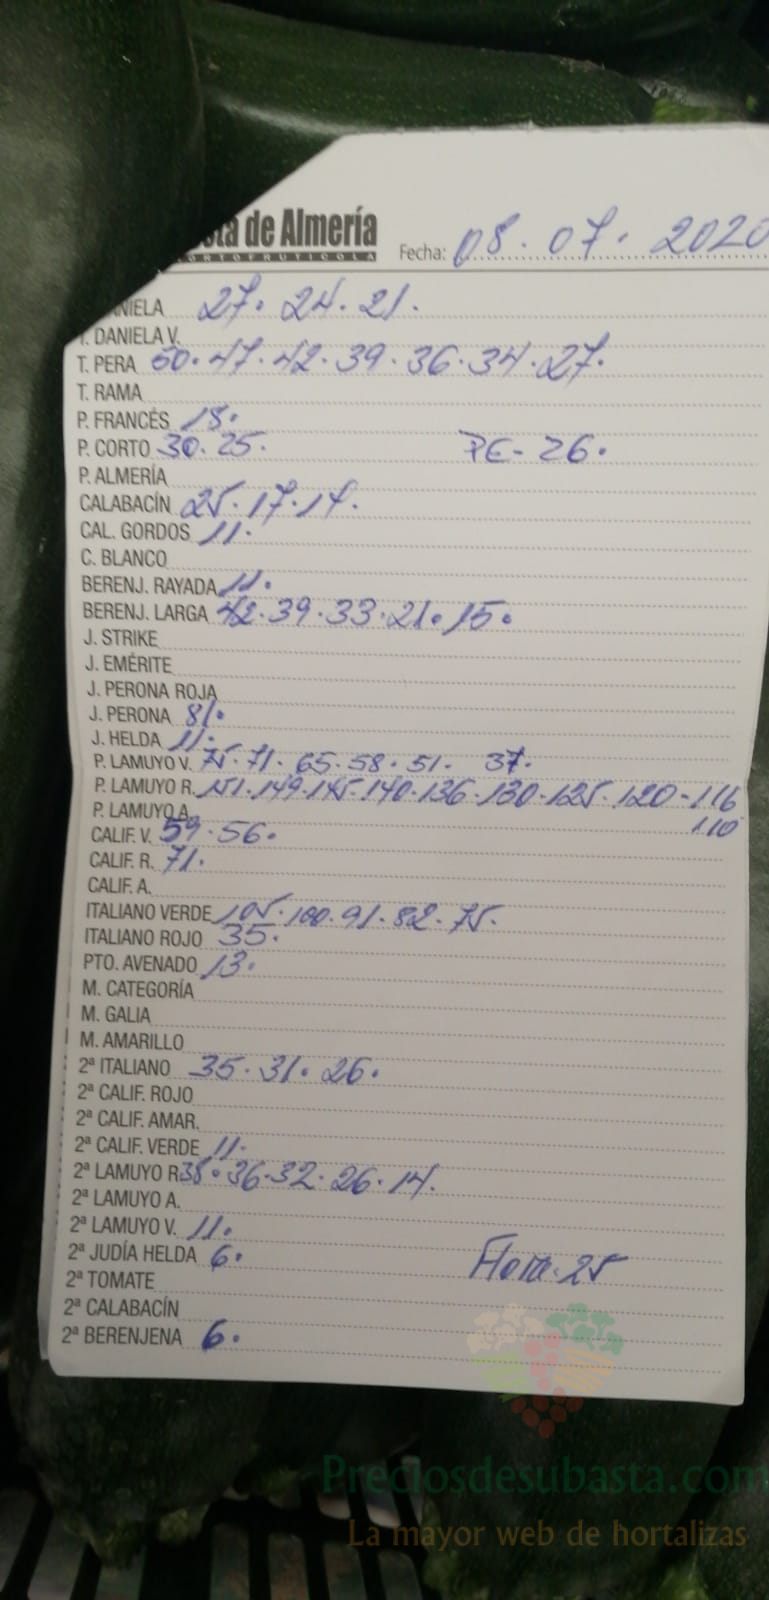 ta de Almería
Fecha: 08.07.2020
ORTOFRUTICOLA
NIELA 27. 24. 21.
T. DANIELA V.
T. PERA 50. 47. 42. 39. 36. 34. 27.
T. RAMA
P. FRANCÉS 18.
P. CORTO 30. 25. PE- 26.
P. ALMERÍA
CALABACÍN 25. 17. 14.
CAL. GORDOS 11.
C. BLANCO
BERENJ. RAYADA 11.
BERENJ. LARGA 42. 39. 33. 21. 15.
J. STRIKE
J. EMÉRITE
J. PERONA ROJA
J. PERONA 81.
J. HELDA 11.
P. LAMUYO V. 75. 71. 65. 58. 51. 37.
P. LAMUYO R. 151. 149. 145. 140. 136. 130. 125. 120 - 116
P. LAMUYO A. 110
CALIF. V. 59. 56.
CALIF. R. 71.
CALIF. A.
ITALIANO VERDE 105. 100. 91. 82. 75.
ITALIANO ROJO 35.
PTO. AVENADO 13.
M. CATEGORÍA
M. GALIA
M. AMARILLO
2ª ITALIANO 35. 31. 26.
2ª CALIF. ROJO
2ª CALIF. AMAR.
2ª CALIF. VERDE 11.
2ª LAMUYO R 38. 36. 32. 26. 14.
2ª LAMUYO A.
2ª LAMUYO V. 11.
2ª JUDÍA HELDA 6. Flora. 25
2ª TOMATE
2ª CALABACÍN
2ª BERENJENA 6.
Preciosdesubasta.com
La mayor web de hortalizas